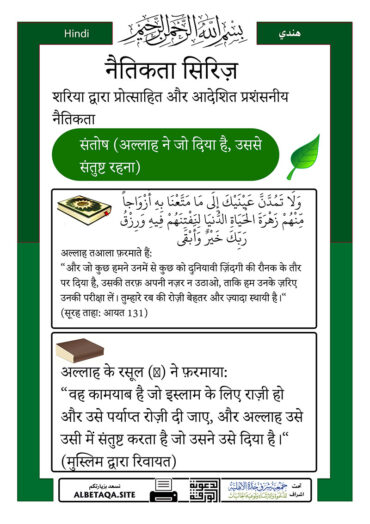 Hindi
بِسْمِ اللَّهِ الرَّحْمَٰنِ الرَّحِيمِ
هندي
नैतिकता सिरिज़
शरिया द्वारा प्रोत्साहित और आदेशित प्रशंसनीय
नैतिकता
संतोष (अल्लाह ने जो दिया है, उससे
संतुष्ट रहना)
وَلَا تَمُدَّنَّ عَيْنَيْكَ إِلَى مَا مَتَّعْنَا بِهِ أَزْوَاجاً
مِّنْهُمْ زَهْرَةَ الْحَيَاةِ الدُّنيَا لِنَفْتِنَهُمْ فِيهِ وَرِزْقُ
رَبِّكَ خَيْرٌ وَأَبْقَى
अल्लाह तआला फ़रमाते हैं:
“और जो कुछ हमने उनमें से कुछ को दुनियावी ज़िंदगी की रौनक के तौर
पर दिया है, उसकी तरफ़ अपनी नज़र न उठाओ, ताकि हम उनके ज़रिए
उनकी परीक्षा लें। तुम्हारे रब की रोज़ी बेहतर और ज़्यादा स्थायी है।“
(सूरह ताहा: आयत 131)
अल्लाह के रसूल (ﷺ) ने फ़रमाया:
“वह कामयाब है जो इस्लाम के लिए राज़ी हो
और उसे पर्याप्त रोज़ी दी जाए, और अल्लाह उसे
उसी में संतुष्ट करता है जो उसने उसे दिया है।“
(मुस्लिम द्वारा रिवायत)
نسعد بزيارتكم
ALBETAQA.SITE
تحت
اشراف